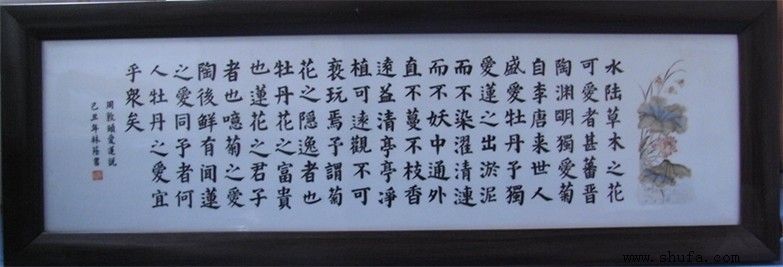 水陸草木之花
可愛者甚蕃晋
陶渊明獨愛菊
自李唐来世人
盛愛牡丹予獨
愛蓮之出淤泥
而不染濯清漣
而不妖中通外
直不蔓不枝香
遠益清亭亭凈
植可遠觀不可
褻玩焉予謂菊
花之隠逸者也
牡丹花之富貴
也蓮花之君子
者也噫菊之愛
陶後鮮有闻蓮
之愛同予者何
人牡丹之愛宜
乎衆矣
周敦頤愛蓮説
己丑年林書
www.shufa.com